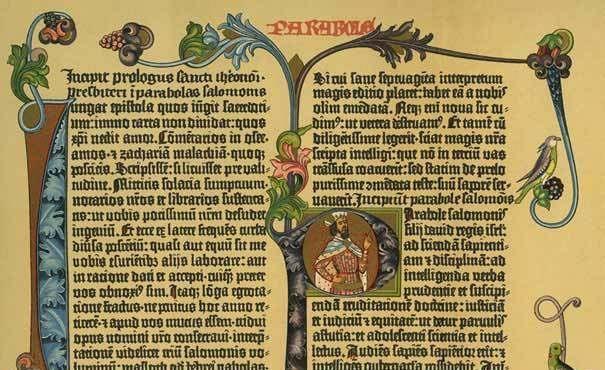 PARABOLE
Incipit prologus sancti iheronimi
presbiteri ī parabolas salomonis
Iungat epistola quos iūgit sacerdoti-
um: immo carta non dividat: quos
xp̄i nectit amor. Cōmētarios in osee.
amos. ⁊ zachariā malachiā. quoq;
poscitis. Scripsissē: si licuisset pre vali-
tudine. Mittitis solacia sumptuum.
notarios nr̄os et librarios sustenta-
tis: ut vobis potissimū nr̄m desudet
ingeniū. Et ecce ex latere frequēs turba
diūsa poscētiū: quasi aut equū sit me
vobis esuriētibus alijs laborare: aut
in ratione dati et accepti. cuiq̄ preter
vos obnoxiꝰ sim. Itaq; lōga egrota-
tione fractus. ne penitus hoc anno re-
ticerē. ⁊ apud vos mutus essem. tridui
opus nomini vr̄o consecravi. interp̄-
tationē videlicet triū salomonis vo-
luminū: masloth qd̄ hebrei pabolas.
Si cui sane septuagīta interpretum
magis editio placet: habet eā a nobis
olim emēdatā. Neq; enī nova sic cu-
dimꝰ: ut vetera destruamꝰ. Et tamē cū
diligētissime legerit. sciat magis nr̄a
scripta intelligi: que nō in terciū vas
trāsfusa coacuerīt: sed statim de prelo
purissime ɔmēdata teste: suū saporē ser-
vaverīt. Incipiunt parabole salomonis
Parabole salomonis
filij david regis isrl̄:
ad sciendā sapienti-
am ⁊ disciplinā: ad
intelligenda verba
prudentie et suscipi-
endā eruditationē doctrine: iusticiā
et iudiciū ⁊ equitatē: ut detur parvulis
astutia: et adolescenti scientia et intel-
lectus. Audiēs sapiēs sapiētior erit: ⁊
intelligēs gubernacla possidebit.